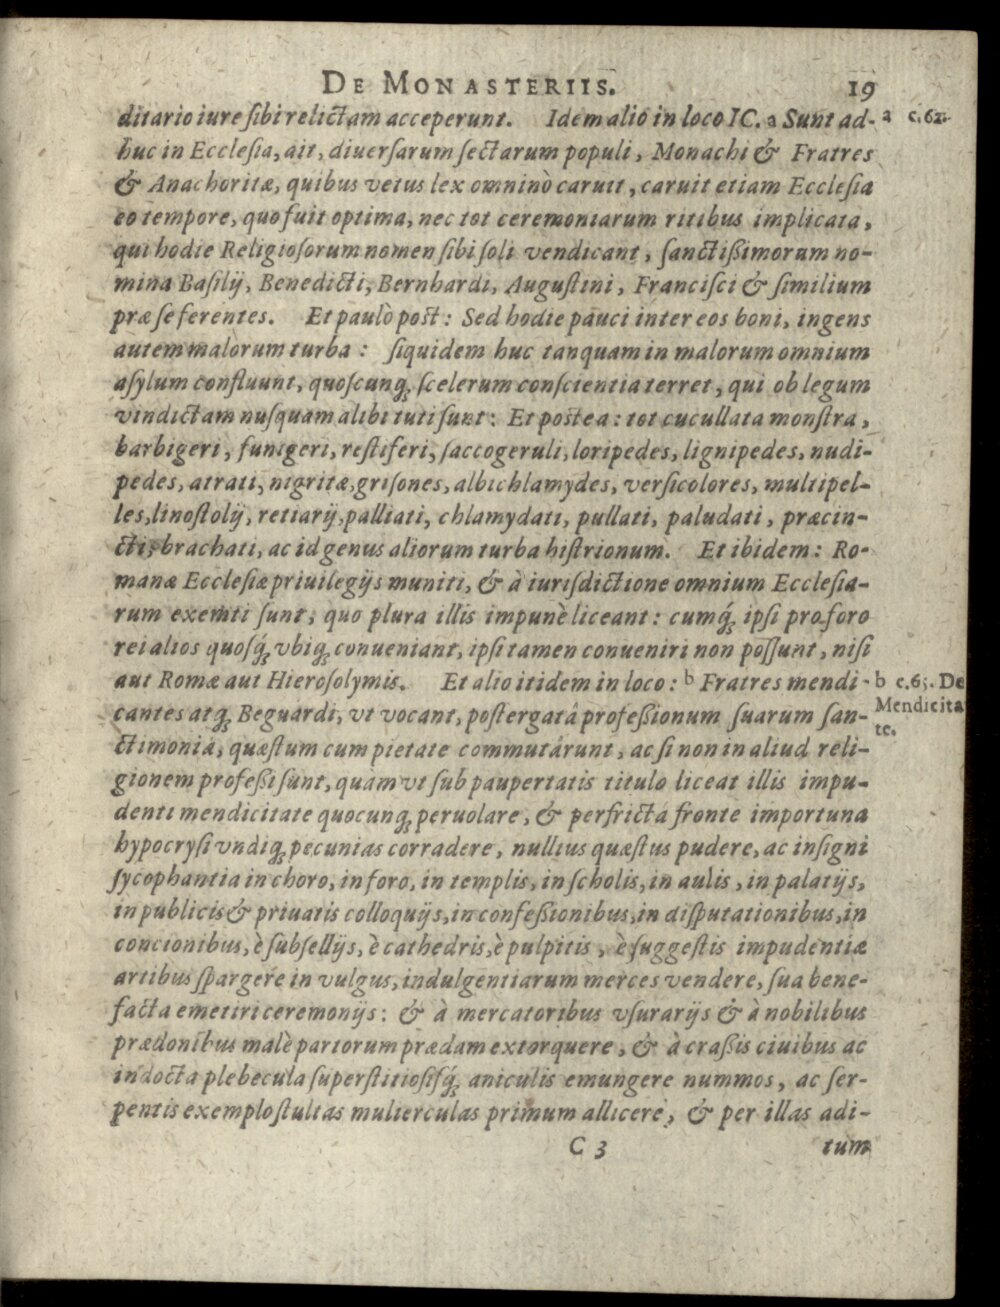 DE MONASTERIIS. 19
ditario iure ſibi relictam acceperunt. Idem alio in loco IC. a Sunt ad- a c.62.
huc in Eccleſia, ait, diuerſarum ſectarum populi, Monachi & Fratres
& Anachoritæ, quibus vetus lex omninò caruit, caruit etiam Eccleſia
eo tempore, quo fuit optima, nec tot ceremoniarum ritibus implicata,
qui hodie Religioſorum nomen ſibi ſoli vendicant, ſanctißimorum no-
mina Baſilij, Benedicti, Bernhardi, Auguſtini, Franciſci & ſimilium
præ ſe ferentes. Et paulò poſt: Sed hodie pauci inter eos boni, ingens
autem malorum turba: ſiquidem huc tanquam in malorum omnium
aſylum confluunt, quoſcunq; ſcelerum conſcientia terret, qui ob legum
vindictam nuſquam alibi tuti ſunt: Et poſtea: tot cucullata monſtra,
barbigeri, funigeri, reſtiferi, ſaccogeruli, loripedes, lignipedes, nudi-
pedes, atrati, nigritæ, griſones, albichlamydes, verſicolores, multipel-
les, linoſtolij, retiarij, palliati, chlamydati, pullati, paludati, præcin-
cti, brachati, ac id genus aliorum turba hiſtrionum. Et ibidem: Ro-
manæ Eccleſiæ priuilegijs muniti, & à iuriſdictione omnium Eccleſia-
rum exemti ſunt, quo plura illis impunè liceant: cumq́; ipſi pro foro
rei alios quoſq́; vbiq; conueniant, ipſi tamen conueniri non poſſunt, niſi
aut Romæ aut Hieroſolymis. Et alio itidem in loco: b Fratres mendi- b c.65. De
cantes atq; Beguardi, vt vocant, poſtergatâ profeßionum ſuarum ſan- Mendicita
ctimoniâ, quæſtum cum pietate commutârunt, ac ſi non in aliud reli- te.
gionem profeßi ſunt, quam vt ſub paupertatis titulo liceat illis impu-
denti mendicitate quocunq; peruolare, & perfricta fronte importuna
hypocryſi vndiq; pecunias corradere, nullius quæſtus pudere, ac inſigni
ſycophantia in choro, in foro, in templis, in ſcholis, in aulis, in palatijs,
in publicis & priuatis colloquijs, in confeßionibus, in diſputationibus, in
concionibus, è ſubſellijs, è cathedris, è pulpitis, è ſuggeſtis impudentiæ
artibus ſpargere in vulgus, indulgentiarum merces vendere, ſua bene-
facta emetiri ceremonijs: & à mercatoribus vſurarijs & à nobilibus
prædonibus malè partorum prædam extorquere, & à craßis ciuibus ac
indocta plebecula ſuperſtitioſiſq́; aniculis emungere nummos, ac ſer-
pentis exemplo ſtultas mulierculas primum allicere, & per illas adi-
C 3 tum